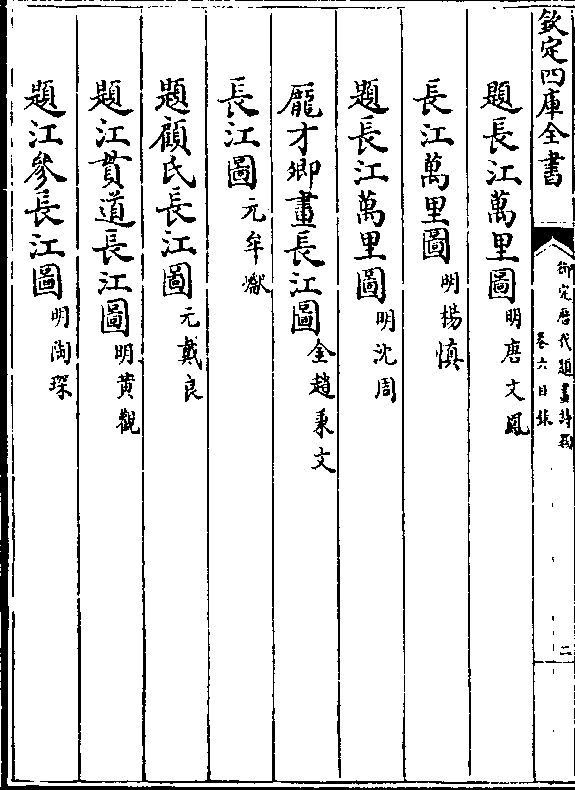 欽定四庫全書
御定歷代題畫詩類
卷六目錄
二
題長江萬里圖 明唐文鳳
長江萬里圖 明楊慎
題長江萬里圖 明沈周
龎才卿畫長江圖 金趙秉文
長江圖 元牟巘
題顧氏長江圖 元戴良
題江貫道長江圖 明黃觀
題江參長江圖 明陶琛